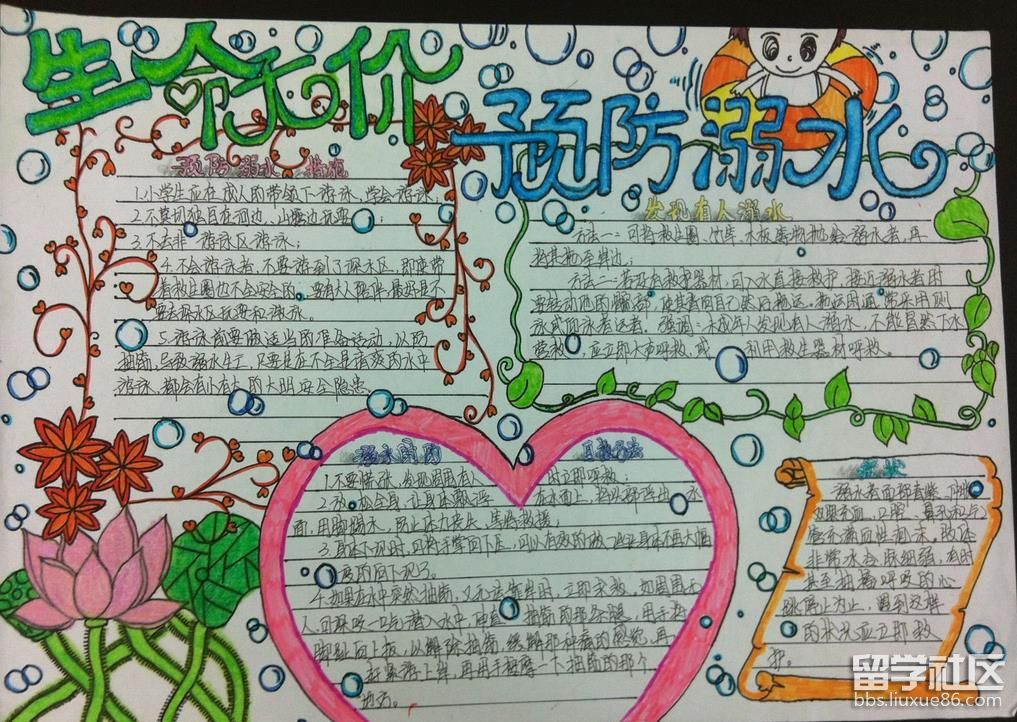 生命无价
预防溺水
预防溺水措施
1.小学生应在成人的带领下游泳,学会游泳;
2.不要独自在河边、山塘边玩耍;
3.不去非游泳区游泳;
4.不会游泳者,不要游到了深水区,即使带
有救生圈也不会安全的。要有大人陪伴,最好是不
要去深水区玩耍和游泳。
5.游泳前要做适当的准备活动,以防
抽筋,导致溺水
游泳,都会有安全隐患
发现有人溺水
方法一:可将救生圈、竹竿、木板等物抛给溺水者,再
将其拖至岸边;
方法二:若没有救护器材,可入水直接救护。接近溺水者时
要转动他的髋部,使其背向自己然后拖运。拖运时通常采用侧
泳或仰泳拖运法。强调:未成年人发现有人溺水,不能冒然下水
营救,应立即大声呼救,或利用救生器材呼救。
溺水时的自救方法
1.不要慌张,发现周围有人时立即呼救;
2.放松全身,让身体飘浮在水面上,将头部浮出水
面,用脚踢水,防止体力丧失,等待救援;
3.身体下沉时,可将手掌向下压,
4.如果在水中突然抽筋,又无法靠岸时,立即求救。如周围无
人,可深吸一口气潜入水中,伸直抽筋的那条腿,用手将
脚趾向上扳,以解除抽筋。
症状
溺水者面部青紫、肿胀、
双眼充血,口腔、鼻孔和气
管充满血性泡沫。肢体
非常冰冷,脉细弱,有时
甚至抽搐呼吸的心
跳停止为止,遇到这样
的状况应立即救
护。
留学社区
bbs.liuxue86.com